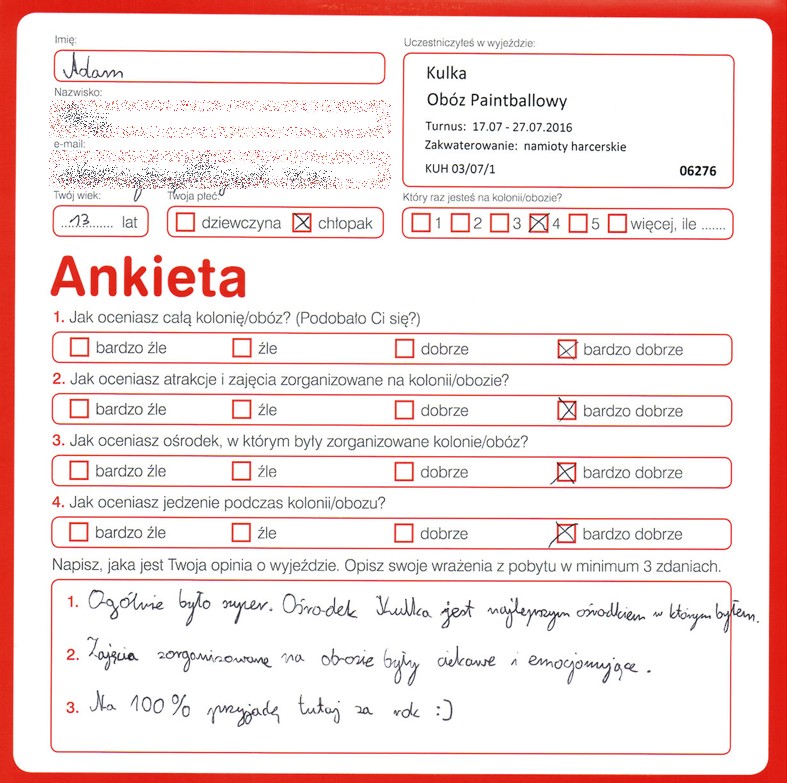 Imię:
Adam
Nazwisko:
e-mail:
Twój wiek:
13 lat
Twoja płeć:
dziewczyna chłopak
Uczestniczyłeś w wyjeździe:
Kulka
Obóz Paintballowy
Turnus: 17.07 - 27.07.2016
Zakwaterowanie: namioty harcerskie
KUH 03/07/1 06276
Który raz jesteś na kolonii/obozie?
1 2 3 4 5 więcej, ile .......
Ankieta
1. Jak oceniasz całą kolonię/obóz? (Podobało Ci się?)
bardzo źle źle dobrze bardzo dobrze
2. Jak oceniasz atrakcje i zajęcia zorganizowane na kolonii/obozie?
bardzo źle źle dobrze bardzo dobrze
3. Jak oceniasz ośrodek, w którym były zorganizowane kolonie/obóz?
bardzo źle źle dobrze bardzo dobrze
4. Jak oceniasz jedzenie podczas kolonii/obozu?
bardzo źle źle dobrze bardzo dobrze
Napisz, jaka jest Twoja opinia o wyjeździe. Opisz swoje wrażenia z pobytu w minimum 3 zdaniach.
1. Ogólnie było super. Ośrodek Kulka jest najlepszym ośrodkiem w którym byłem.
2. Zajęcia zorganizowane na obozie były ciekawe i emocjonujące.
3. Na 100% przyjadę tutaj za rok :)